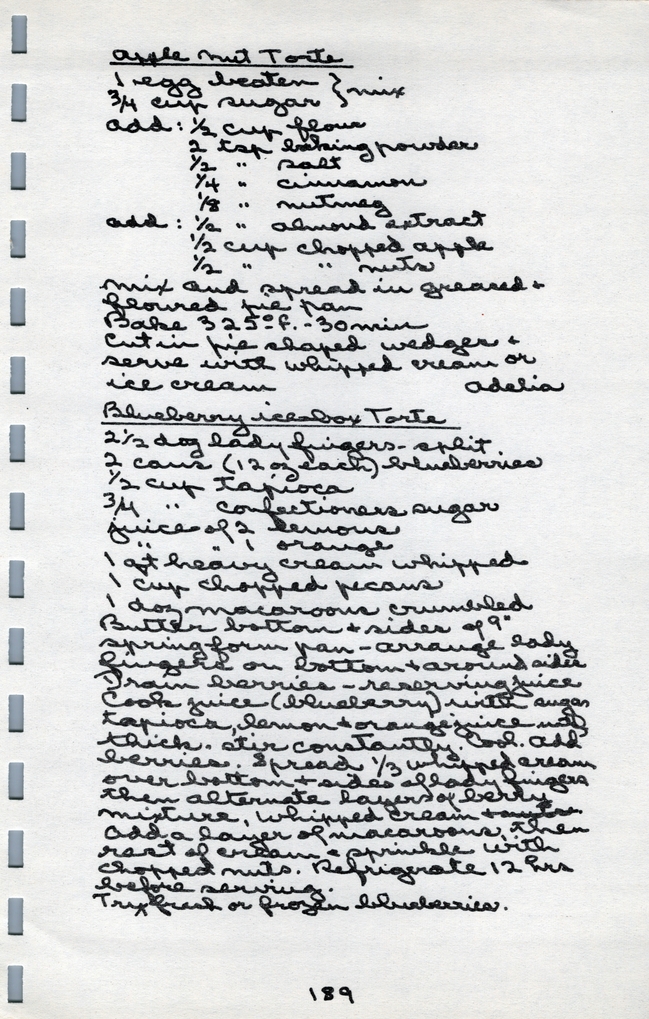 Apple Nut Torte
1 egg beaten } mix
3/4 cup sugar
add: 1/2 cup flour
2 tsp baking powder
1/2 " salt
1/4 " cinnamon
1/8 " nutmeg
add: 1/2 " almond extract
1/2 cup chopped apple
1/2 " " nuts
mix and spread in greased +
floured pie pan
Bake 325° f. - 30 min
Cut in pie shaped wedges +
serve with whipped cream or
ice cream adelia
Blueberry ice-box Torte
2 1/2 doz lady fingers - split
2 cans (12 oz each) blueberries
1/2 cup tapioca
3/4 " confectioners sugar
juice of 2 lemons
" " 1 orange
1 qt heavy cream whipped
1 cup chopped pecans
1 doz macaroons crumbled
Butter bottom + sides of 9"
spring form pan - arrange lady
fingers on bottom + around sides
Drain berries - reserving juice
Cook juice (blueberry) with sugar
tapioca, lemon + orange juice until
thick. stir constantly. Cool. add
berries. Spread 1/3 whipped cream
over bottom + sides of lady fingers
then alternate layers of berry
mixture, whipped cream + nuts
add a layer of macaroons, then
rest of cream + sprinkle with
chopped nuts. Refrigerate 12 hrs
before serving.
Try fresh or frozen blueberries.
189